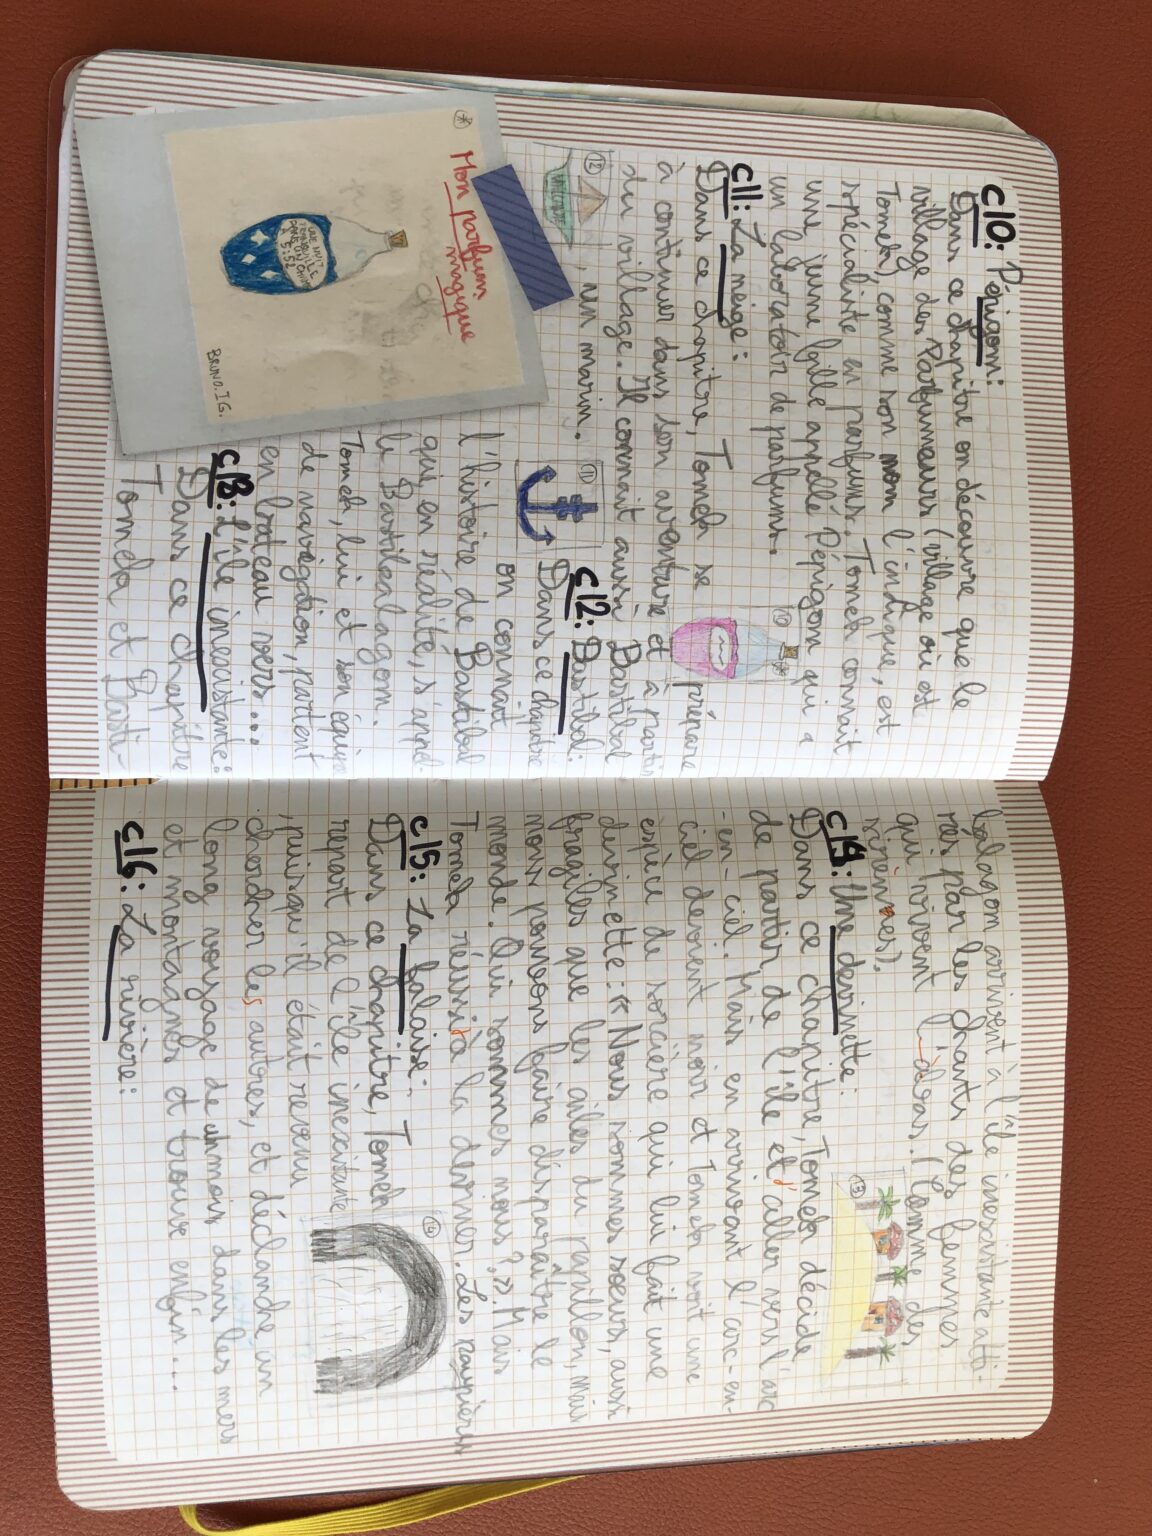 c10: Pépigom:
Dans ce chapitre on découvre que le
village des Parfumeurs (village où est
Tomek), comme son nom l'indique, est
spécialiste en parfums. Tomek connait
une jeune fille appellé Pépigom qui a
un laboratoir de parfums.
c11: La neige:
Dans ce chapitre, Tomek se prépare
à continuer dans son aventure et à partir
du village. Il connait aussi Bastibal
, un marin.
10
11
12
c12: Bastibal:
Dans ce chapitre
on connait
l'histoire de Bastibal
qui en réalité, s'appel-
le Bastibalagom.
Tomek, lui et son équipe
de navigation, partent
en brateau vers...
c13: L'île inexistante:
Dans ce chapitre
Tomek et Basti-
Mon parfum
magique
UNE NUIT
TRANQUILLE
DANS UN CHAMP
À 5:52
BRUNO.IG.
balagom arrivent à l'île inexistante atti-
rés par les chants des femmes
qui vivent là-bas. (Comme des
sirènes).
13
c14: Une devinette:
Dans ce chapitre, Tomek décide
de partir de l'île et d'aller vers l'arc
-en-ciel. Mais en arrivant l'arc-en-
ciel devient noir et Tomek voit une
espèce de sorcière qui lui fait une
devinette: «Nous sommes soeurs, aussi
fragiles que les ailes du papillon, mais
nous pouvons faire disparaître le
monde. Qui sommes nous?». Mais
Tomek réussit à la deviner. Les paupières
14
c15: La falaise:
Dans ce chapitre, Tomek
repart de l'île inexistante
, puisqu'il était revenu
chercher les autres, et déclanche un
long voyage de un mois dans les mers
et montagnes et trouve enfin...
c16: La rivière: